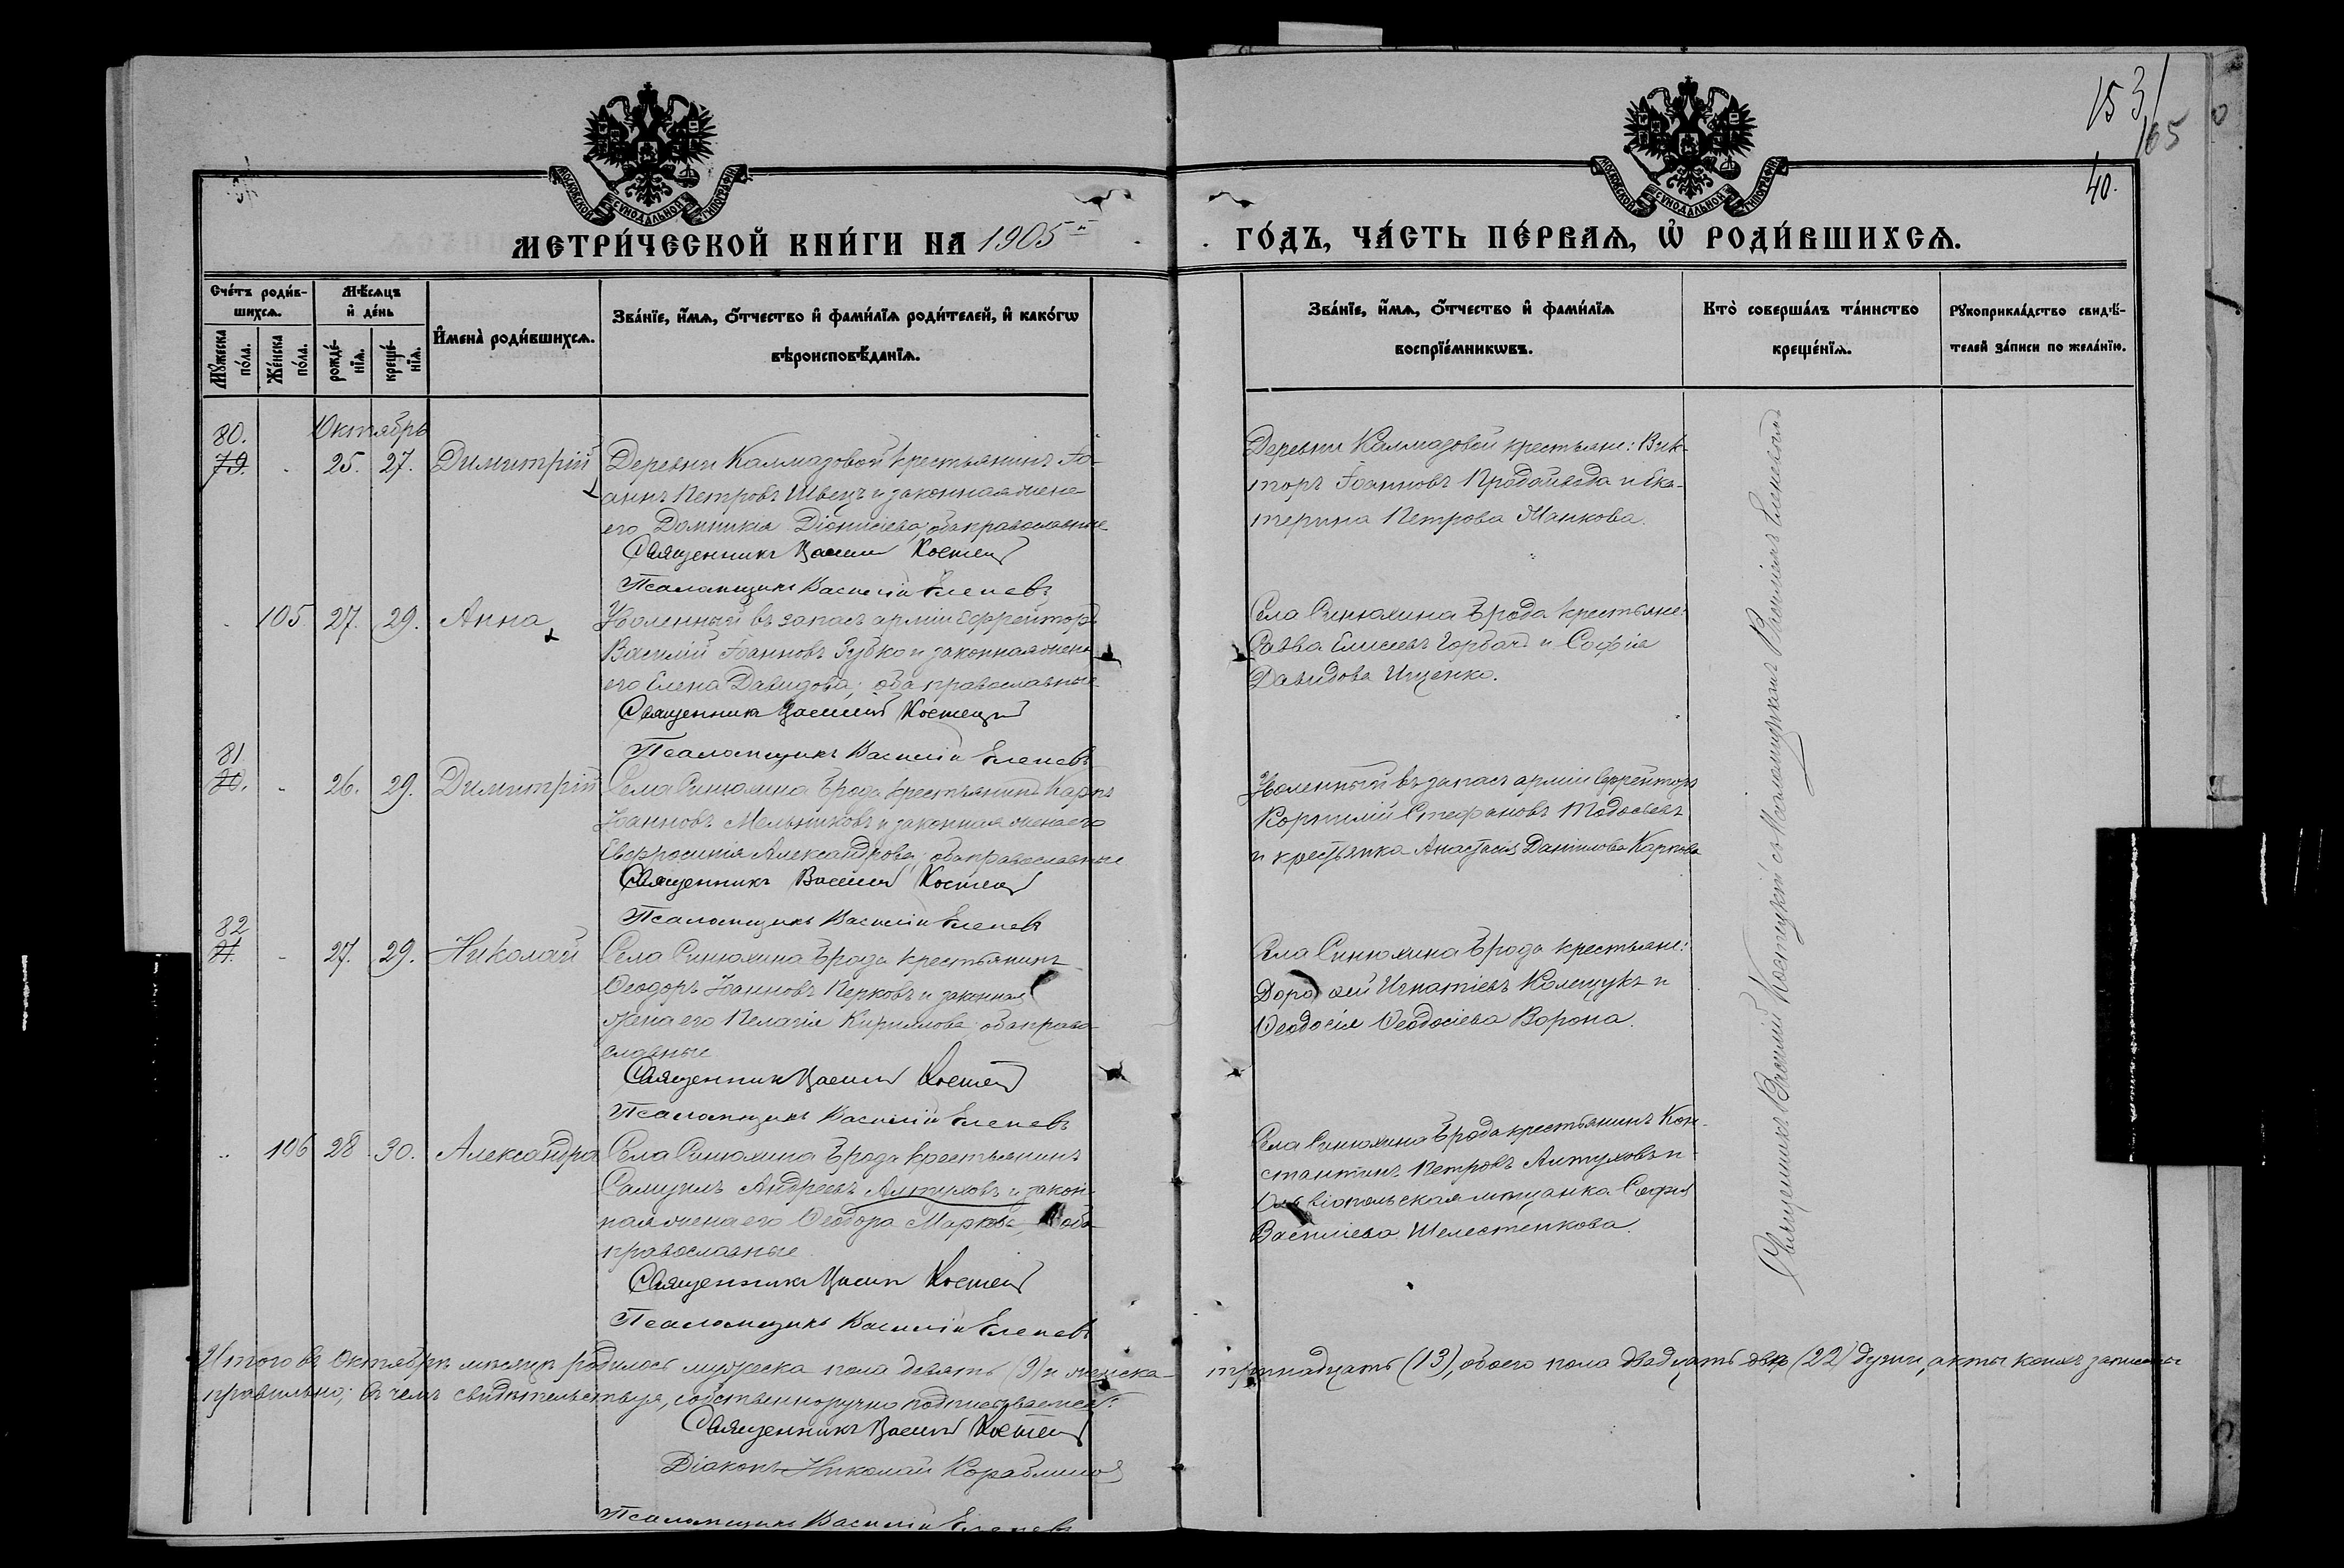 153
165
40.
МОСКОВСКОЙ СѴНОДАЛЬНОЙ ТИПОГРАФІИ
МОСКОВСКОЙ СѴНОДАЛЬНОЙ ТИПОГРАФІИ
МЕТРИ́ЧЕСКОЙ КНИ́ГИ НА 1905й
ГО́ДЪ, ЧА́СТЬ ПЕ́РВАѦ, Ѡ҆ РОДИ́ВШИХСѦ.
Сче́тъ роди́в-
шихсѧ.
Мꙋ́жеска по́ла.
Же́нска по́ла.
Мѣ́сѧцъ
и҆ де́нь
рожде́-
нїѧ.
креще́-
нїѧ.
И҆мена̀ роди́вшихсѧ.
Зва́нїе, и҆́мѧ, ѻ҆́тчество и҆ фами́лїѧ роди́телей, и҆ како́гѡ
вѣроисповѣ́данїѧ.
Зва́нїе, и҆́мѧ, ѻ҆́тчество и҆ фами́лїѧ
воспрїе́мникѡвъ.
Кто̀ соверша́лъ та́инство
креще́нїѧ.
Рꙋкоприкла́дство свидѣ́-
телей за́писи по жела́нїю.
Октябрь
80.
79. 25. 27. Димитрій
Деревни Калмазовой крестьянинъ Іо-
аннъ Петровъ Швецъ и законная жена
его Домникія Діонисіева, оба православные
Священникъ Василій Костецкій
Псаломщикъ Василій Еленевъ
Деревни Калмазовой крестьяне: Вик-
торъ Іоанновъ Продайвода и Ека-
терина Петрова Манкова.
105 27. 29. Анна
Уволенный въ запасъ арміи Ефрейторъ
Василій Іоанновъ Зубко и законная жена
его Елена Давидова; оба православные
Священникъ Василій Костецкій
Псаломщикъ Василій Еленевъ
Села Синюхина Брода крестьяне:
Савва Елисеевъ Горбачъ и Софія
Давидова Ищенко.
81
80. 26. 29. Димитрій
Села Синюхина Брода крестьянинъ Карпъ
Іоанновъ Мельниковъ и законная жена его
Евфросинія Александрова; оба православные
Священникъ Василій Костецкій
Псаломщикъ Василій Еленевъ
Уволенный въ запасъ арміи Ефрейторъ
Корнилій Стефановъ Тодосьевъ
и крестьянка Анастасія Даніилова Карпова
82
81. 27. 29. Николай
Села Синюхина Брода крестьянинъ
Ѳеодоръ Іоанновъ Перковъ и законная
жена его Пелагія Кириллова оба право-
славные
Священникъ Василій Костецкій
Псаломщикъ Василій Еленевъ
Села Синюхина Брода крестьяне:
Дороѳей Игнатіевъ Колещукъ и
Ѳеодосія Ѳеодосіева Ворона.
106 28. 30. Александра
Села Синюхина Брода крестьянинъ
Самуилъ Андреевъ Алтуховъ и закон-
ная жена его Ѳеодора Маркова, оба
православные
Священникъ Василій Костецкій
Псаломщикъ Василій Еленевъ
Села Синюхина Брода крестьянинъ Кон-
стантинъ Петровъ Алтуховъ и
Ольвіопольская мѣщанка Софія
Василіева Шелестенкова.
Священникъ Василій Костецкій съ псаломщикомъ Василіемъ Еленевымъ
Итого въ Октябрѣ мѣсяцѣ родилось мужеска пола девять (9) и женска тринадцать (13), обоего пола двадцать двѣ (22) души, акты коихъ записаны
правильно; въ чемъ свидѣтельствуя, собственноручно подписываемся:
Священникъ Василій Костецкій
Діаконъ Николай Кораблиновъ
Псаломщикъ Василій Еленевъ